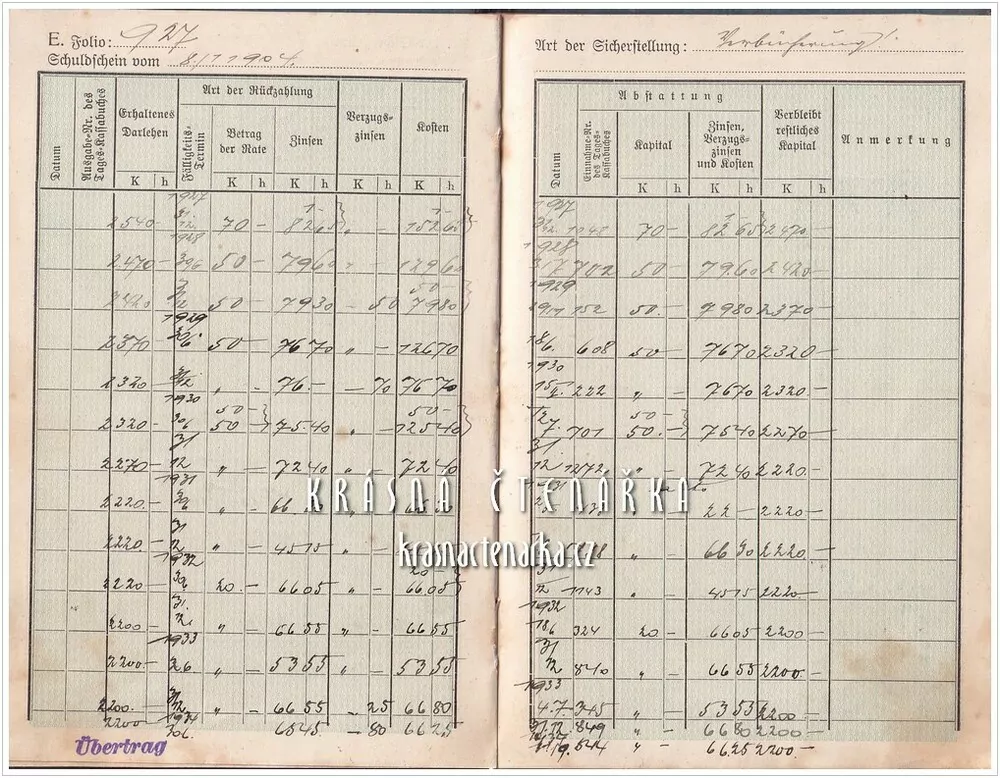 E. Folio: 927
Schuldschein vom 8/11904.
Datum
Ausgabe-Nr. des Tages-Kassabuches
Erhaltenes Darlehen
K h
Art der Rückzahlung
Fälligkeits-Termin
Betrag der Rate
K h
Zinsen
K h
Verzugs-zinsen
K h
Kosten
K h
1927
31.
12
2540 — 70 — 82 65 „ — 152 65
1928
2470 — 30/6 50 — 79 60 129 60
2420 31/12 50 — 79 30 — 50 79 80
1929
2370 30/6 50 — 76 70 „ — 126 70
2320 31/12 „ — 76.— — 70 76 70
1930
50 — 50 —
2320 — 30/6 50 — 75 40 „ — 125 40
31
2270 — 12 „ — 72 40 „ 72 40
1931
2220. 30/6 „ — 66
31
2220 — 12 „ — 45 15 „
1932
2220 30/6 20.— 66 05 „ — 66 05
31.
2200 — 12. „ — 66 55 „ — 66 55
1933
2200 — „ — 53 55 „ — 53 55
2200. — 31/12 „ — 66 55 — 25 66 80
1934
2200 30/6. 65 45 — 80 66 25
Übertrag
Art der Sicherstellung: Verbücherung
Datum
Einnahme-Nr. des Tages-Kassabuches
Abstattung
Kapital
K h
Zinsen, Verzugs-zinsen und Kosten
K h
Verbleibt restliches Kapital
K h
Anmerkung
1927
31/12. 1048 70 — 82 65 2470 —
1928
702 50 — 79.60 2420 —
1929
152 50. — 79 80 2370 —
18/6. 608 50 — 76 70 2320 —
1930
222 „ — 76 70 2320 —
50 —
701 50. — 75 40 2270 —
31
12 1272 „ — 72 40 2220. —
22 — 2220. —
„ 66 30 2220. —
31
12 1143 „ — 45 15 2220. —
1932
18/6 324 20 — 66 05 2200 —
31
12 840 „ — 66 55 2200. —
1933
4.7. 345 „ — 53 55 2200. —
849 „ — 66 80 2200 —
„ — 66 25 2200 —
KRÁSNÁ ČTENÁŘKA
krasnactenarka.cz